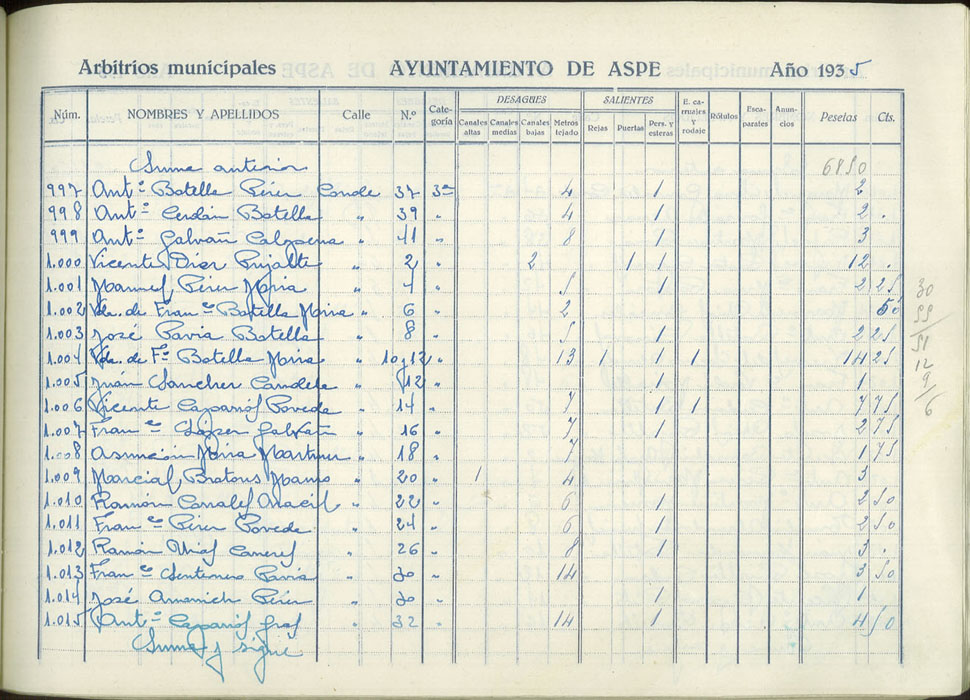 Arbitrios municipales AYUNTAMIENTO DE ASPE Año 1935
Núm. NOMBRES Y APELLIDOS Calle N.º Categoría DESAGUES Canales altas Canales medias Canales bajas Metros tejado SALIENTES Rejas Puertas Pers. y esteras E. carruajes y rodaje Rótulos Escaparates Anuncios Pesetas Cts.
Suma anterior 6850
997 Ant.º Botella Pérez Conde 37 3ª 4 1 2
998 Ant.º Cerdán Botella " 39 " 4 1 2 .
999 Ant.º Galvañ Calpena " 41 " 8 1 3
1.000 Vicente Díez Pujalte " 2 " 2 1 1 12 .
1.001 Manuel Pérez Mira " 4 " 5 1 2 25
1.002 Vda. de Fran.co Botella Mira " 6 " 2 50
1.003 José Pavia Botella " 8 " 5 1 2 25
1.004 Vda. de F.co Botella Mira " 10, 12 " 13 1 1 1 14 25
1.005 Juán Sanchez Candela " 12 " 1 1
1.006 Vicente Caparrós Poveda " 14 " 7 1 1 7 75
1.007 Fran.co López Galvañ " 16 " 7 1 2 75
1.008 Asunción Mira Martinez " 18 " 7 1 75
1.009 Marcial 20 " 1 4 3
1.010 Ramón Canalès " 22 " 6 1 2 50
1.011 Fran.co Pérez Poveda " 24 " 6 1 2 50
1.012 Ramón " 26 " 8 1 3 .
1.013 Fran.co Pavia " 30 " 14 3 50
1.014 José Pérez " 30 " 1 1
1.015 Ant.º Caparrós " 32 " 14 1 4 50
Suma y sigue
30
51
12
9
6